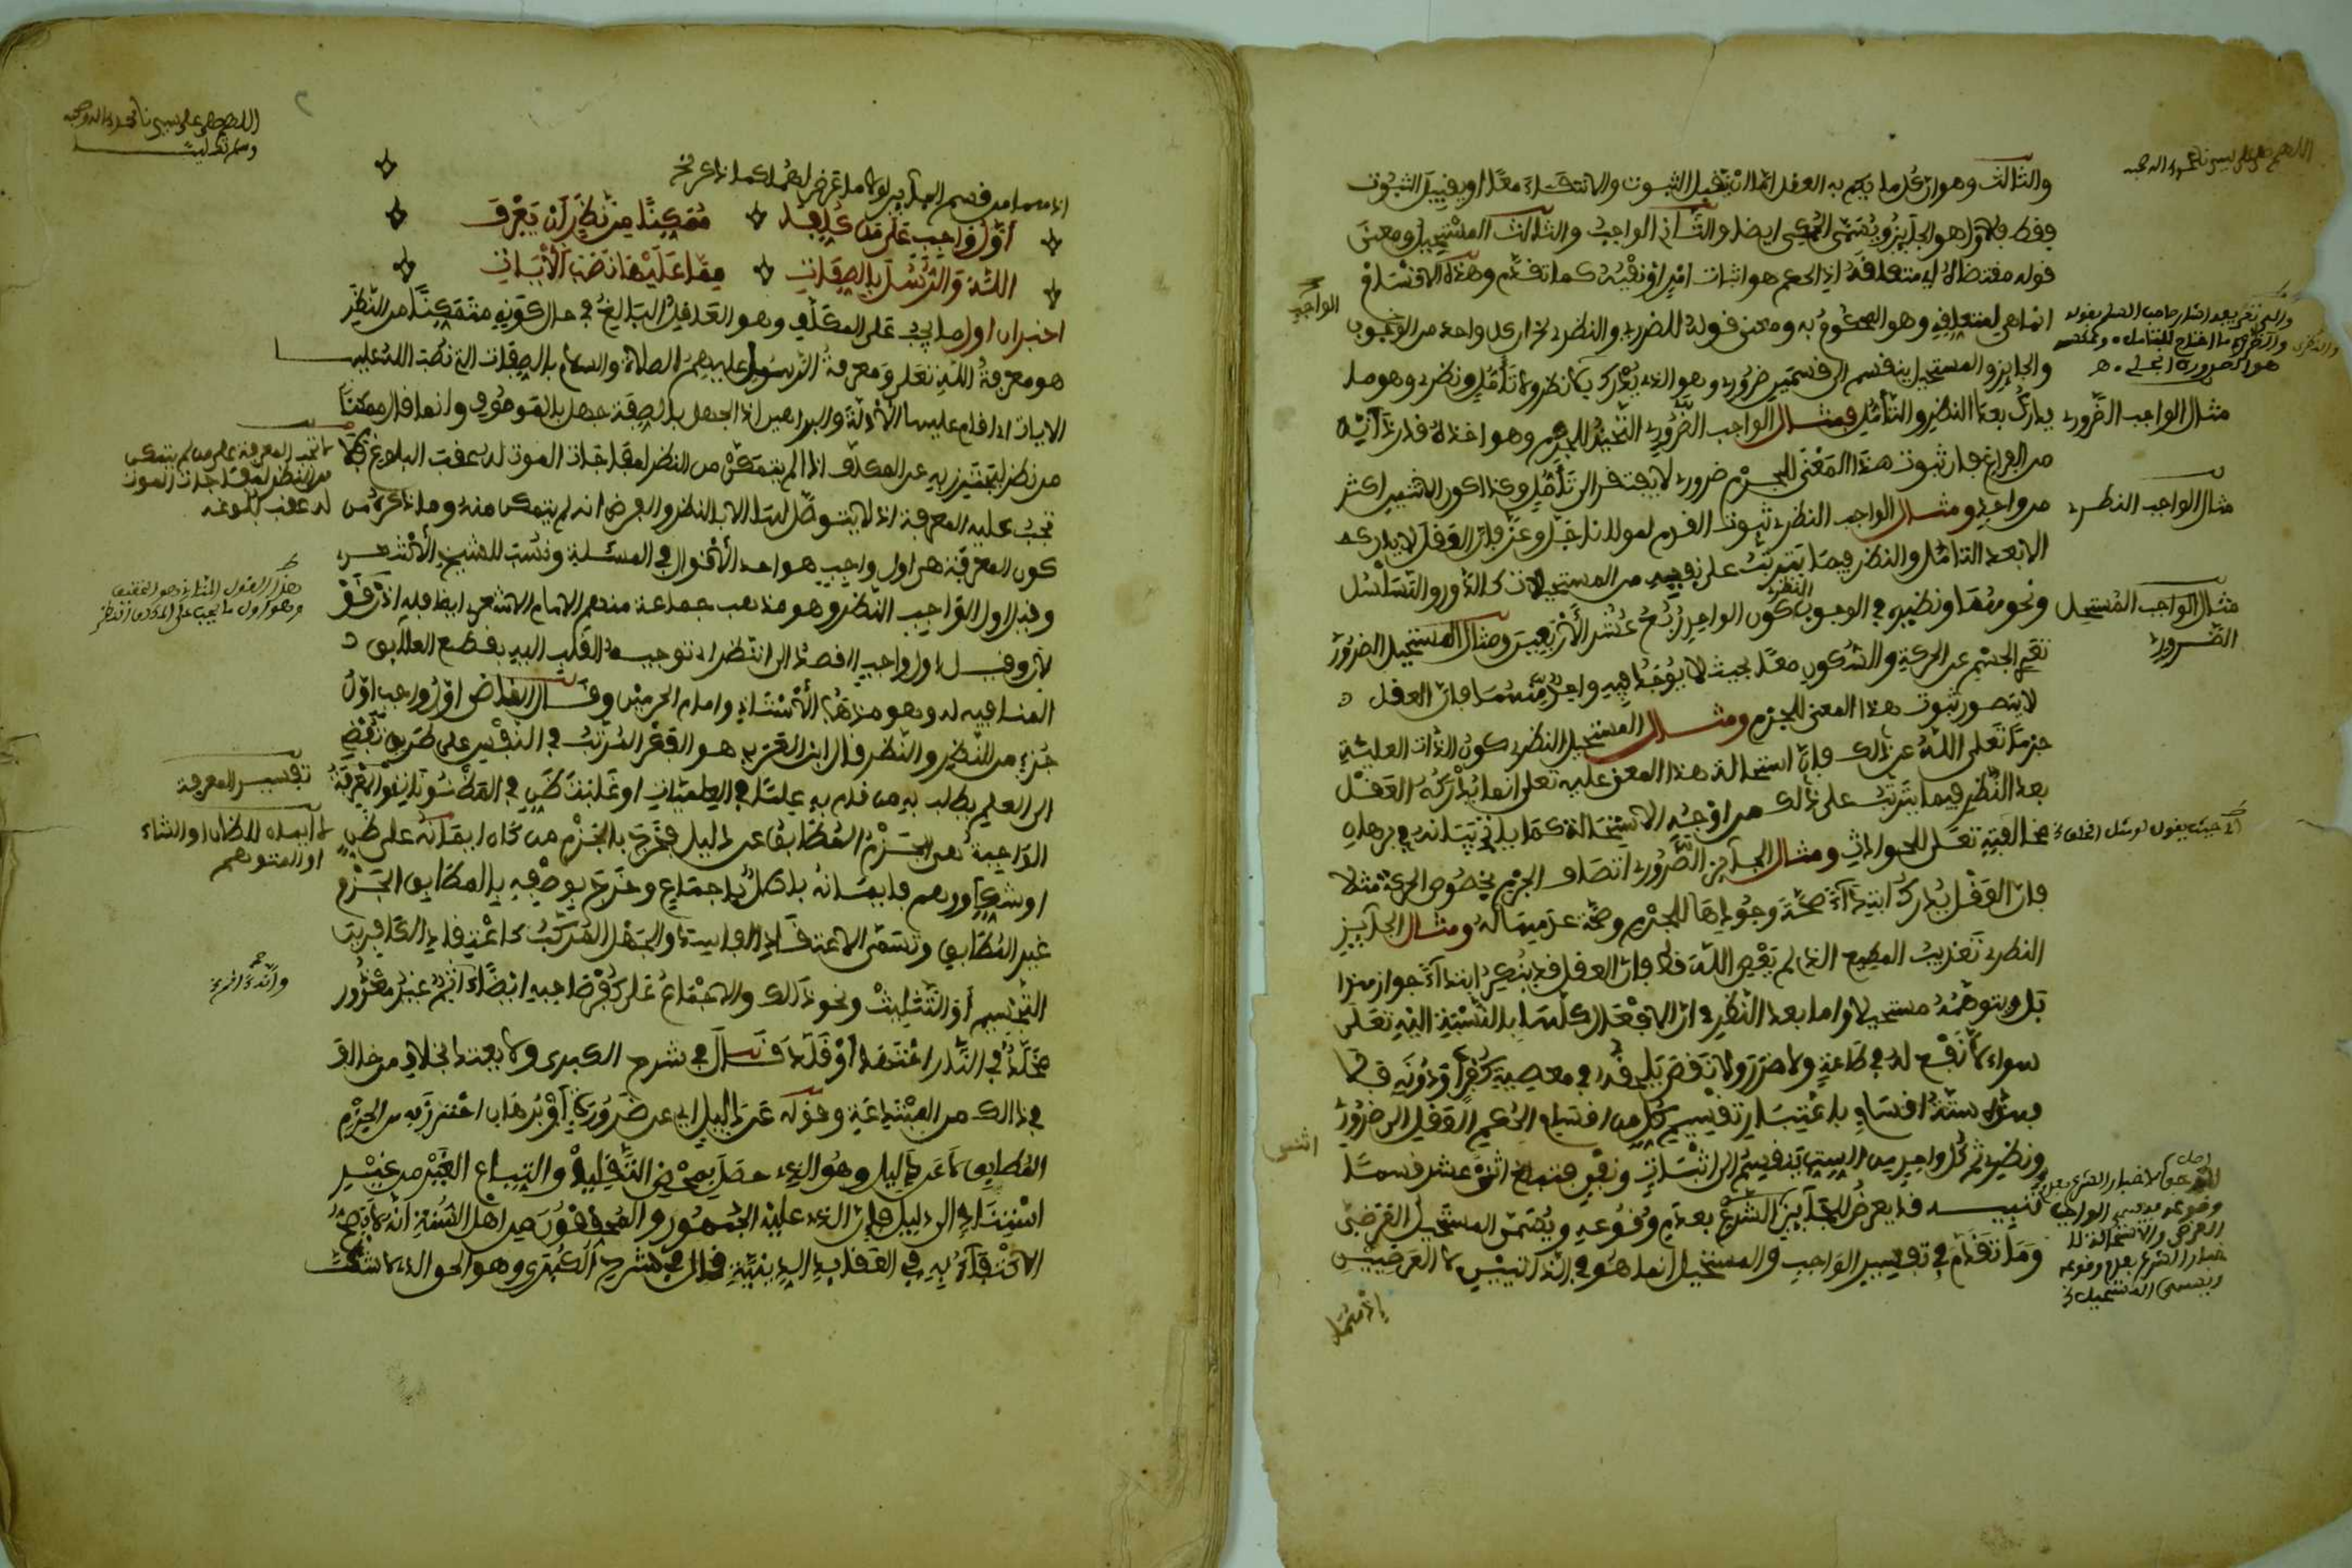 والثالث وهو ان كل ما يحكم به العقل اما ان يقبل الثبوت والانتفاء معا او يقبل الثبوت
فقط فالاول هو الجايز ويسمى الممكن ايضا والثاني الواجب والثالث المستحيل ومعنى
قوله مقتضاه اي متعلقه اذ الحكم هو اثبات امر او نفيه كما تقدم وهذه الاقسام
انما هي لمتعلقه وهو المحكوم به ومعنى قوله للضروري والنظري ان كل واحد من الوجوب
والجايز والمستحيل ينقسم الى قسمين ضروري وهو الذي يدرك بلا نظر ولا تأمل ونظري وهو ما
يدرك بعد النظر والتأمل فمثال الواجب الضروري التحيز للجرم وهو اخذه قدر ذاته
من الفراغ فان ثبوت هذا المعنى للجرم ضروري لا يفتقر الى تأمل وكذا كون الاثنين اكثر
من واحد ومثال الواجب النظري ثبوت القدم لمولانا جل وعز فان العقل لا يدركه
الا بعد التامل والنظر فيما يترتب على نفيه من المستحيلات كالدور والتسلسل
ونحوهما ونظيره في الوجوب النظري كون الواحد ربع عشر الاربعين ومثال المستحيل الضروري
تعري الجسم عن الحركة والسكون معا بحيث لا يوجد فيه واحد منهما فان العقل
لا يتصور ثبوت هذا المعنى للجرم ومثال المستحيل النظري كون الذات العلية
جرما تعلى الله عن ذالك فان استحالة هذا المعنى عليه تعلى انما يدركه العقل
بعد النظر فيما يترتب على ذالك من اوجه الاستحالة كما ياتي بيانه في برهان
مخالفته تعلى للحوادث ومثال الجايز الضروري اتصاف الجرم بخصوص الحركة مثلا
فان العقل يدرك ابتداء صحة وجودها للجرم وصحة عدمها له ومثال الجايز
النظري تعذيب المطيع الذي لم يعص الله قط فان العقل قد ينكر ابتداء جواز هذا
بل ويتوهمه مستحيلا واما بعد النظر في ان الافعال كلها بالنسبة اليه تعلى
سواء لا نفع له في طاعة ولا ضرر ولا نقص يلحقه في معصية كفر او دونه
فهذه ستة اقسام باعتبار تقسيم كل من اقسام الحكم العقلي الى ضروري
ونظري ثم كل واحد من الستة ينقسم الى اثبات ونفي فتبلغ اثنى عشر قسما
تنبيه قد يعرض للجايز اخبار الشرع بعدم وقوعه ويسمى المستحيل العرضي
وما تقدم في تفسير الواجب والمستحيل انما هو في الذاتيين لا العرضيين
اذ هما
الواجب
مثال الواجب الضروري
مثال الواجب النظري
مثال الواجب المستحيل
الضروري
اللهم صل على سيدنا محمد واله وصحبه
وسلم تسليما
انهما من قسم الجايز لولا ما عرض لهما كما ذكرنا
اول واجب على من كلفا ممكنا من نظر ان يعرف
الله والرسل بالصفات مما عليها نصب الايات
اخبر ان اول ما يجب على المكلف وهو العاقل البالغ في حال كونه متمكنا من النظر
هو معرفة الله تعلى ومعرفة الرسول عليهم الصلاة والسلام بالصفات التي نصب الله عليها
الايات اي اقام عليها الادلة والبراهين اذ الجهل بالصفة جهل بالموصوف وانما قال ممكنا
من نظر ليحترز به عن المكلف اذا لم يتمكن من النظر لمفاجات الموت له عقب البلوغ فلا
تجب عليه المعرفة اذ لا يتوصل لها الا بالنظر والفرض انه لم يتمكن منه وما ذكره من
كون المعرفة هي اول واجب هو احد الاقوال في المسئلة ونسب للشيخ الاشعري
وقيل اول الواجب النظر وهو مذهب جماعة منهم الامام الاشعري ايضا
وقيل اول واجب القصد الى النظر اي توجيه القلب اليه بقطع العلايق
المنافية له وهو مذهب الاستاذ وامام الحرمين وقال القاضي اول واجب اول
جزء من النظر والنظر قال ابن العربي هو الفكر المرتب في النفس على طريق تفضي
الى العلم يطلب به من قام به علما في العلميات او غلبة ظن في المظنونات والمعرفة
الواجبة هي الجزم المطابق عن دليل فخرج بالجزم من كان ايمانه على ظن
او شك او وهم فايمانه باطل باجماع وخرج بوصفه بالمطابق الجزم
غير المطابق وتسمى الاعتقاد الفاسد والجهل المركب كاعتقاد الكافرين
التجسيم او التثليث ونحو ذالك والاجماع على كفر صاحبه ايضا انه غير معذور
مخلد في النار اعتقد او قلد قال في شرح الكبرى ولا يعتد بخلاف من خالف
في ذالك من المبتدعة وقوله عن دليل اي عن ضرورة او برهان احترز به من الجزم
المطابق لا عن دليل وهو الذي حصل بمحض التقليد واتباع الغير من غير
استناد الى دليل فان الذي عليه الجمهور والمحققون من اهل السنة انه لا يصح
الاكتفاء به في العقايد الدينية قال في شرح الكبرى وهو الحق الذي لا شك
تفسير المعرفة
لا ايمان للظان او الشاك
او المتوهم